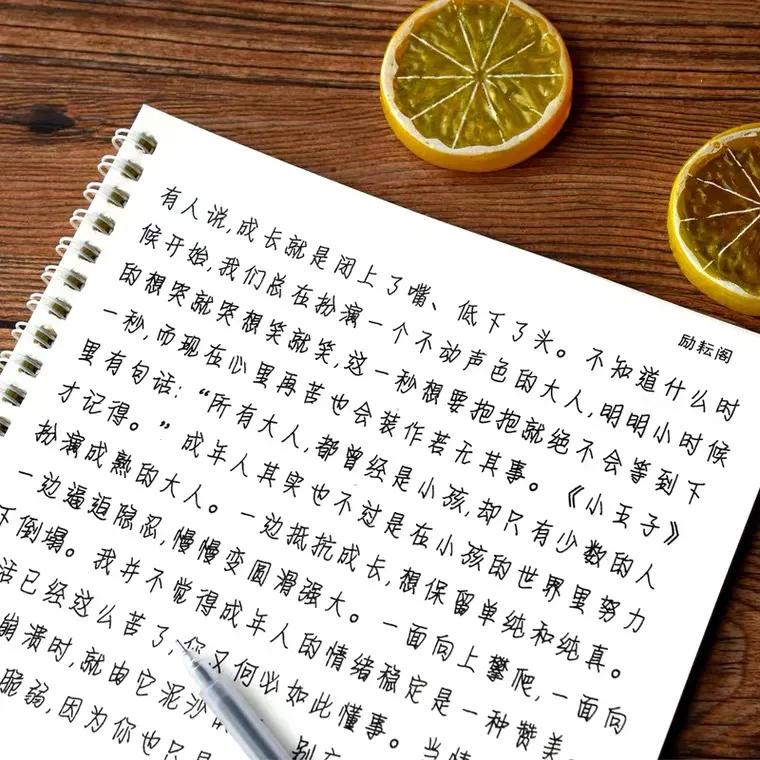 励耘阁
有人说,成长就是闭上了嘴、低下了头。不知道什么时
候开始,我们总在扮演一个不动声色的大人,明明小时候
的想哭就哭想笑就笑,这一秒想要抱抱就绝不会等到下
一秒,而现在心里再苦也会装作若无其事。《小王子》
里有句话:“所有大人,都曾经是小孩,却只有少数的人
才记得。”成年人其实也不过是在小孩的世界里努力
扮演成熟的大人。一边抵抗成长,想保留单纯和纯真。
一边逼迫隐忍,慢慢变圆滑强大。一面向上攀爬,一面向
下倒塌。我并不觉得成年人的情绪稳定是一种赞美。
活已经这么苦了,你又何必如此懂事。当情
崩溃时,就由它泥沙 别在
脆弱,因为你也只是